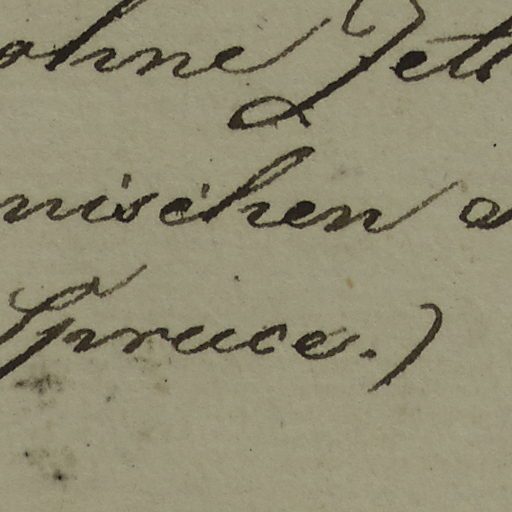 ohne Zett
nischen a
Spruce.)